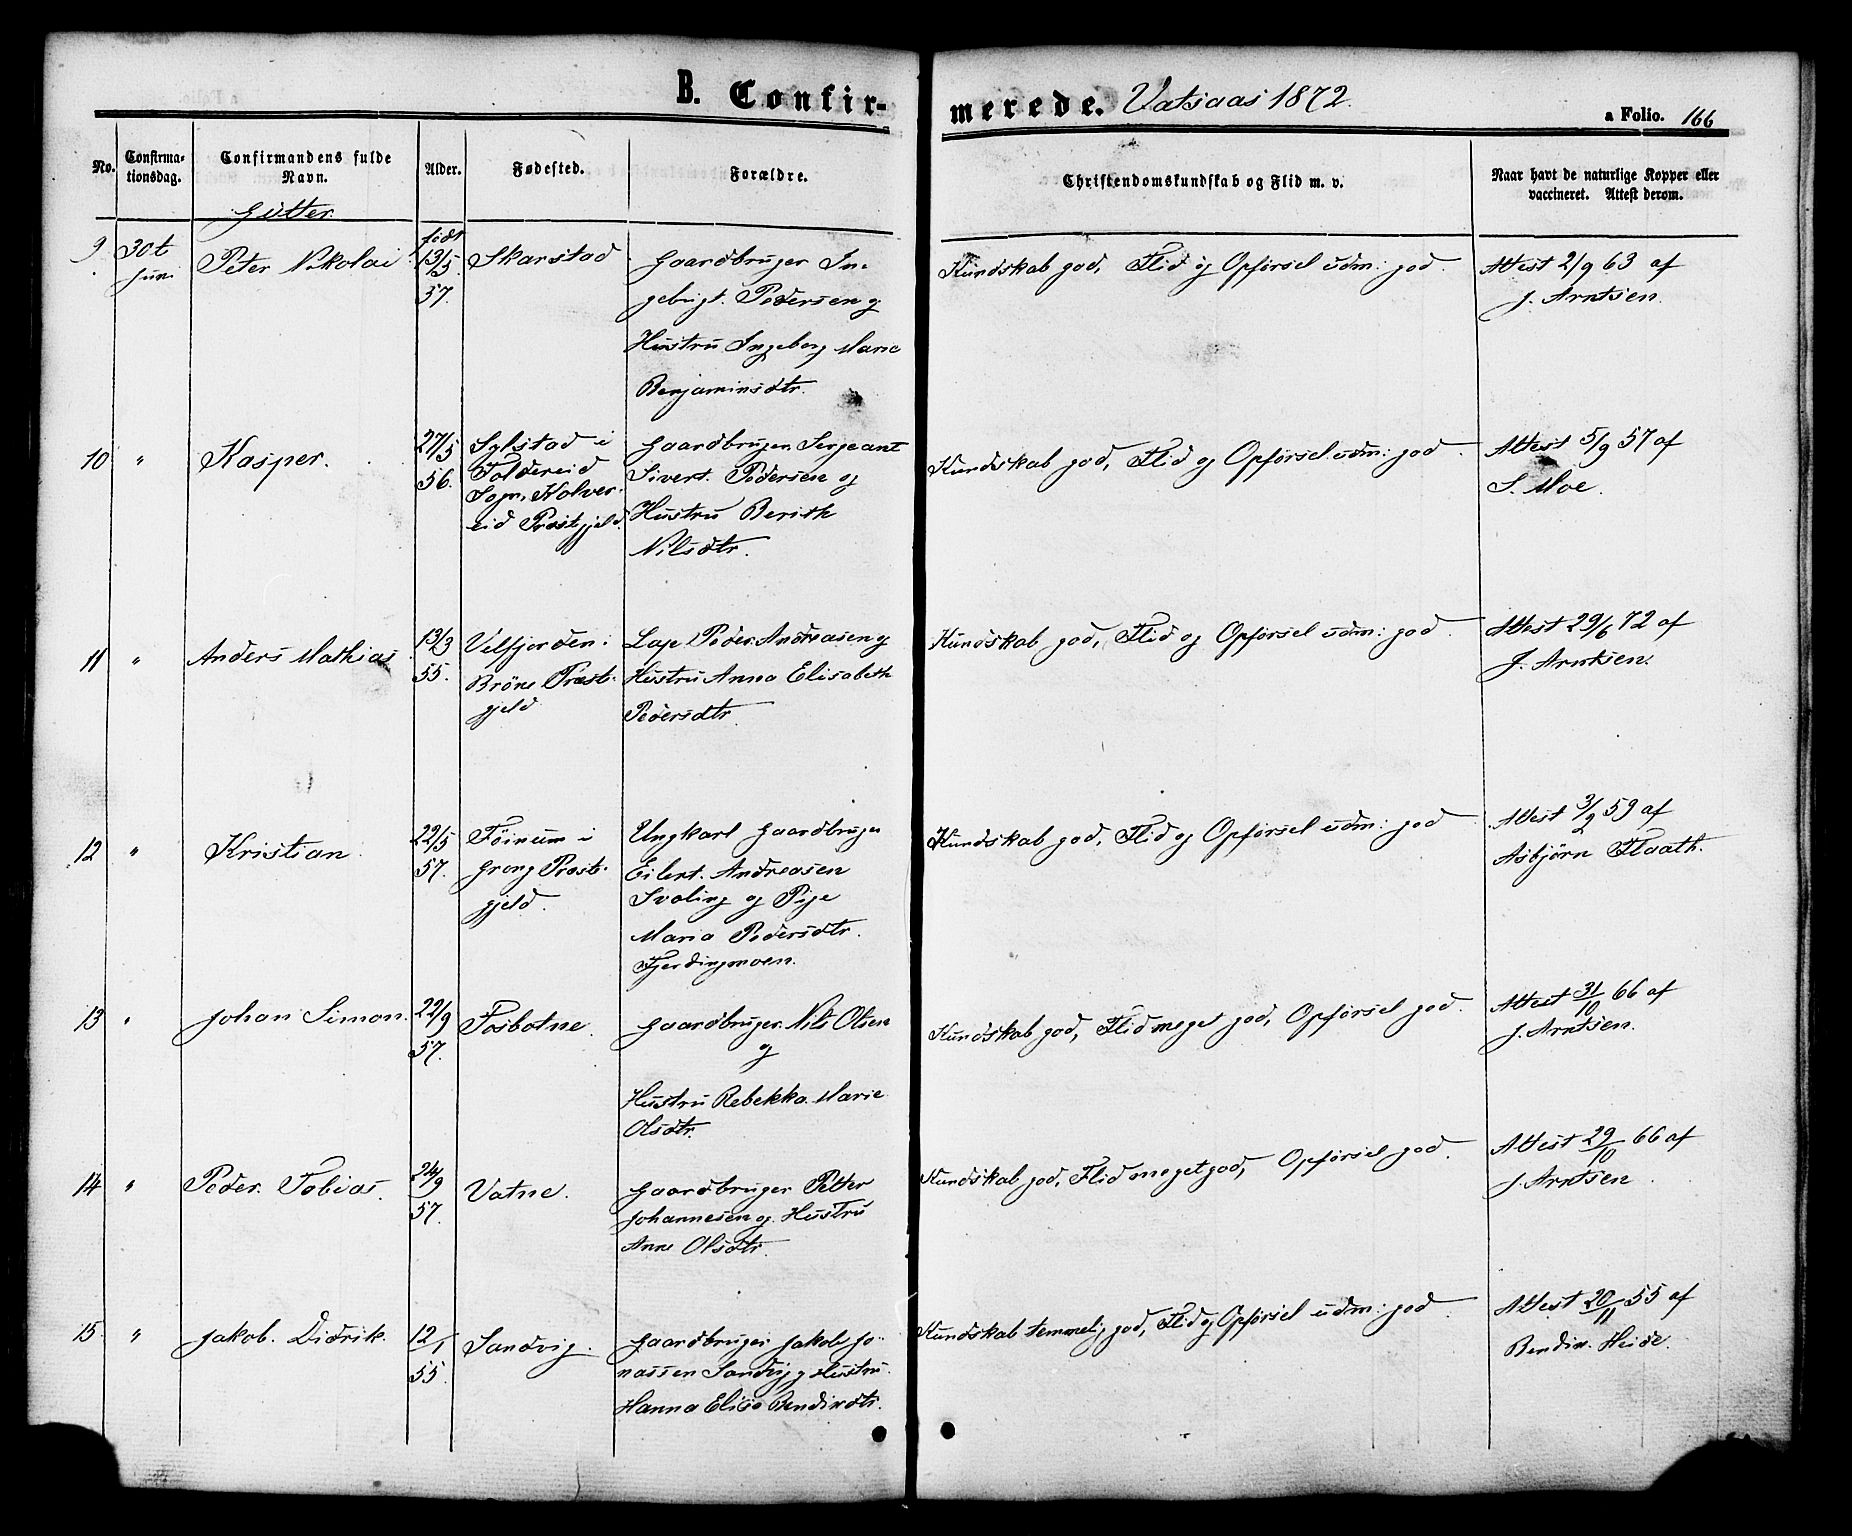 B. Confirmerede. Vatsaas 1872.
a Folio. 166
No.
Confirmationsdag.
Confirmandens fulde Navn.
Alder.
Fødested.
Forældre.
Christendomskundskab og Flid m. v.
Naar havt de naturlige Kopper eller vaccineret. Attest derom.
Gutter.
født
9. 30t Juni Peter Nikolai 13/5 57. Skarstad
Gaardbruger In-
gebrigt. Pedersen og
Hustru Ingeborg Marie
Benjaminsdtr.
Kundskab god, Flid og Opførsel udm: god.
Attest 2/9 63 af
J. Arntsen.
10 " Kasper. 27/5 56.
Sylstad i
Foldereid
Sogn, Kolver-
eid Præstgjeld.
Gaardbruger. Sergeant
Sivert. Pedersen og
Hustru Berith
Nilsdtr.
Kundskab god, Flid og Opførsel udm: god.
Attest 5/9 57 af
S. Moe.
11 " Anders Mathias 13/3 55.
Velfjorden i
Brönö Præst-
gjeld
Lap Peder. Andreasen og
Hustru Anna Elisabeth
Pedersdtr.
Kundskab god, Flid og Opførsel udm: god.
Attest 29/6 72 af
J. Arntsen.
12 " Kristian. 22/5 57.
Föinum i
Grong Præst-
gjeld.
Ungkarl Gaardbruger
Eilert. Andreasen
Svaling og Pige
Maria Pedersdtr.
Fjerdingmoen.
Kundskab god, Flid og Opførsel udm: god
Attest 3/2 59 af
Asbjørn Flaath.
13 " Johan Simon. 22/9 57. Fosbotne.
Gaardbruger. Nils Olsen
og
Hustru Rebekka. Marie
Olsdtr.
Kundskab god, Flid meget god, Opførsel god.
Attest 31/10 66 af
J. Arntsen.
14 " Peder. Tobias. 24/9 57. Vatne.
Gaardbruger Petter
Johannesen og Hustru
Anne Olsdtr.
Kundskab god, Flid meget god, Opførsel god.
Attest 29/10 66 af
J. Arntsen.
15. " Jakob. Didrik. 12/1 55. Sandvig.
Gaardbruger Jakob Jo-
nassen Sandvig og Hustru
Hanna Elise Bendixdtr.
Kundskab temmelig god, Flid og Opførsel udm: god.
Attest 20/11 55 af
Bendix. Heide.